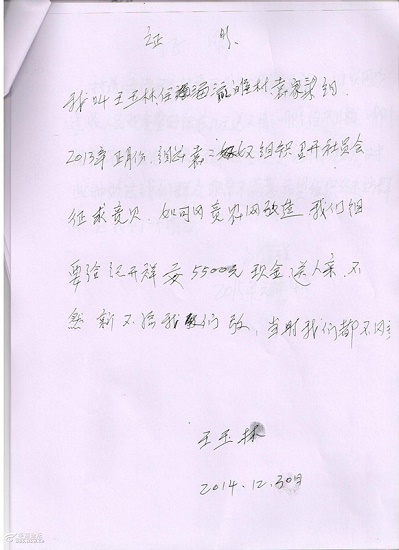 证 明
我叫王玉林住海流滩村袁家梁组.
2013年正月份,组长袁二奴组织召开社员会
征求意见.如何网费农网改造 我们组
要给记开祥 5500元现金送人亲.不
然就不给我们改,当时我们都不同意
王玉林
2014.12.30日